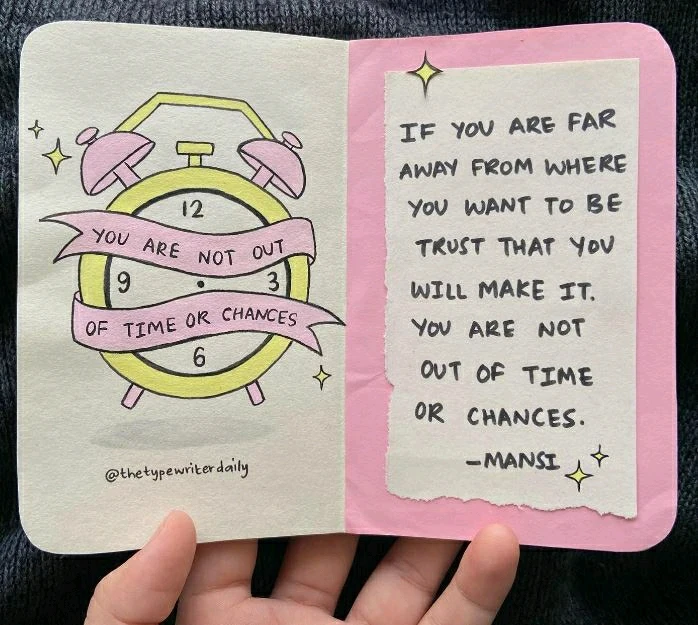 12
YOU ARE NOT OUT
9
3
OF TIME OR CHANCES
6
@thetypewriterdaily
IF YOU ARE FAR
AWAY FROM WHERE
YOU WANT TO BE
TRUST THAT YOU
WILL MAKE IT.
YOU ARE NOT
OUT OF TIME
OR CHANCES.
-MANSI